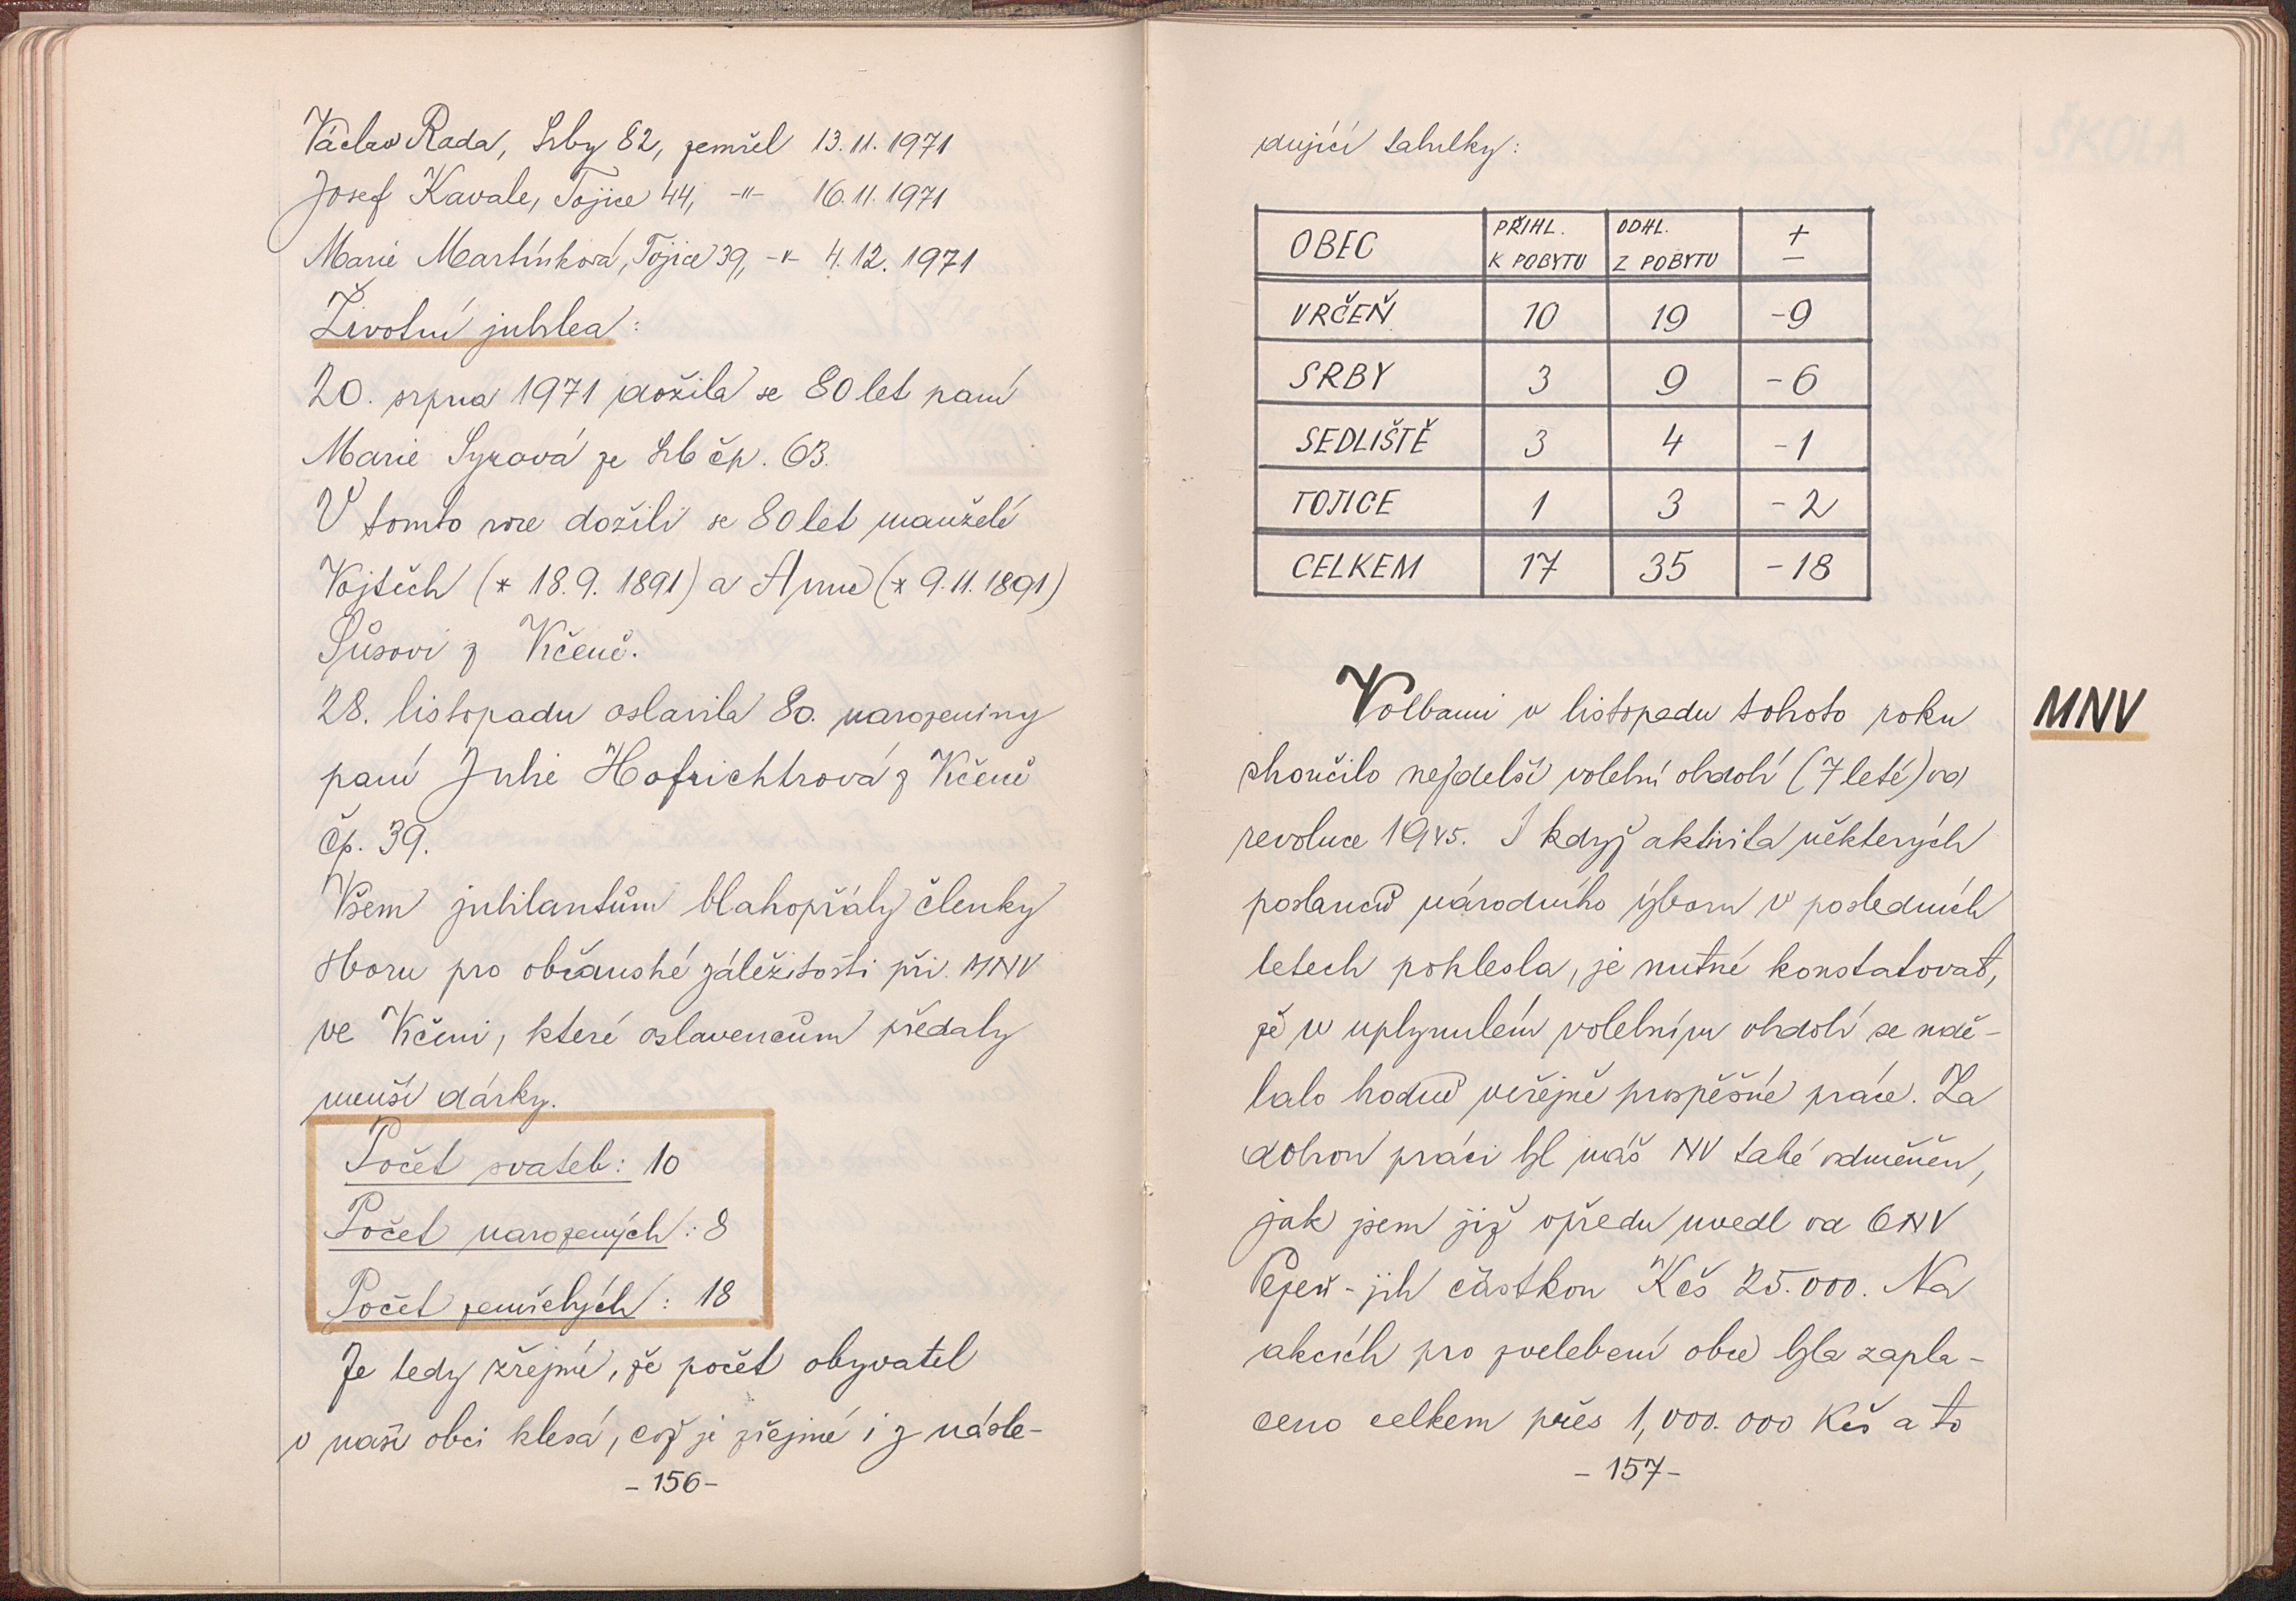 Václav Rada, Srby 82, zemřel 13.11.1971
Josef Kavale, Tojice 44, -"- 16.11.1971
Marie Martínková, Tojice 39, -"- 4.12.1971
Životní jubilea:
20. srpna 1971 dožila se 80 let paní
Marie Syrová ze Srb čp. 63.
V tomto roce dožili se 80 let manželé
Vojtěch (* 18.9.1891) a Anna (* 9.11.1891)
Sůsovi z Vrčeně.
28. listopadu oslavila 80. narozeniny
paní Julie Hofrichtrová z Vrčeně
čp. 39.
Všem jubilantům blahopřály členky
sboru pro občanské záležitosti při MNV
ve Vrčeni, které oslavencům předaly
menší dárky.
Počet svateb: 10
Počet narozených: 8
Počet zemřelých: 18
Je tedy zřejmé, že počet obyvatel
v naší obci klesá, což je zřejmé i z násle-
-156-
dující tabulky:
OBEC PŘIHL. K POBYTU ODHL. Z POBYTU + -
VRČEŇ 10 19 -9
SRBY 3 9 -6
SEDLIŠTĚ 3 4 -1
TOJICE 1 3 -2
CELKEM 17 35 -18
MNV
Volbami v listopadu tohoto roku
skončilo nejdelší volební období (7leté) od
revoluce 1945. I když aktivita některých
poslanců národního výboru v posledních
letech poklesla, je nutné konstatovat,
že v uplynulém volebním období se udě-
lalo hodně veřejně prospěšné práce. Za
dobrou práci byl náš NV také odměněn,
jak jsem již vpředu uvedl od ONV
Plzeň-jih částkou Kčs 25.000. Na
akcích pro zvelebení obce byla zapla-
ceno celkem přes 1,000.000 Kčs a to
-157-